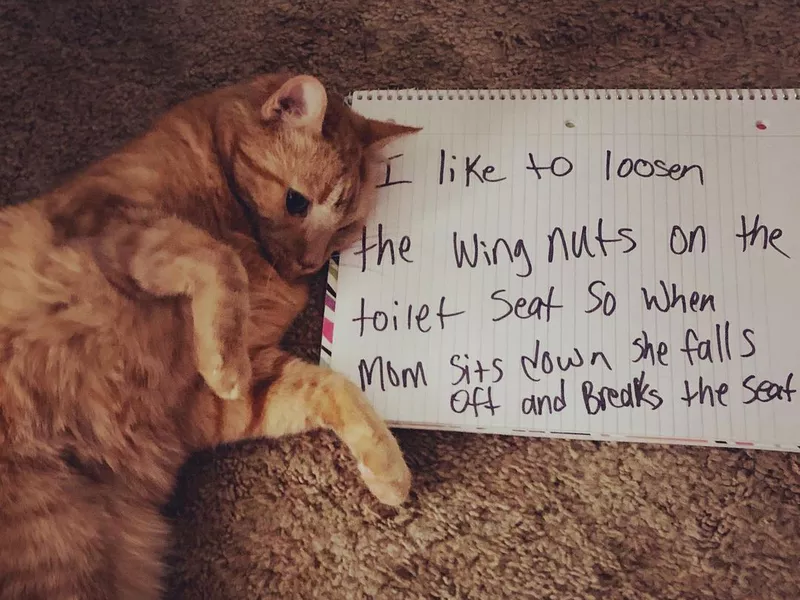 I like to loosen
the wing nuts on the
toilet seat so when
Mom sits down she falls
off and Breaks the seat